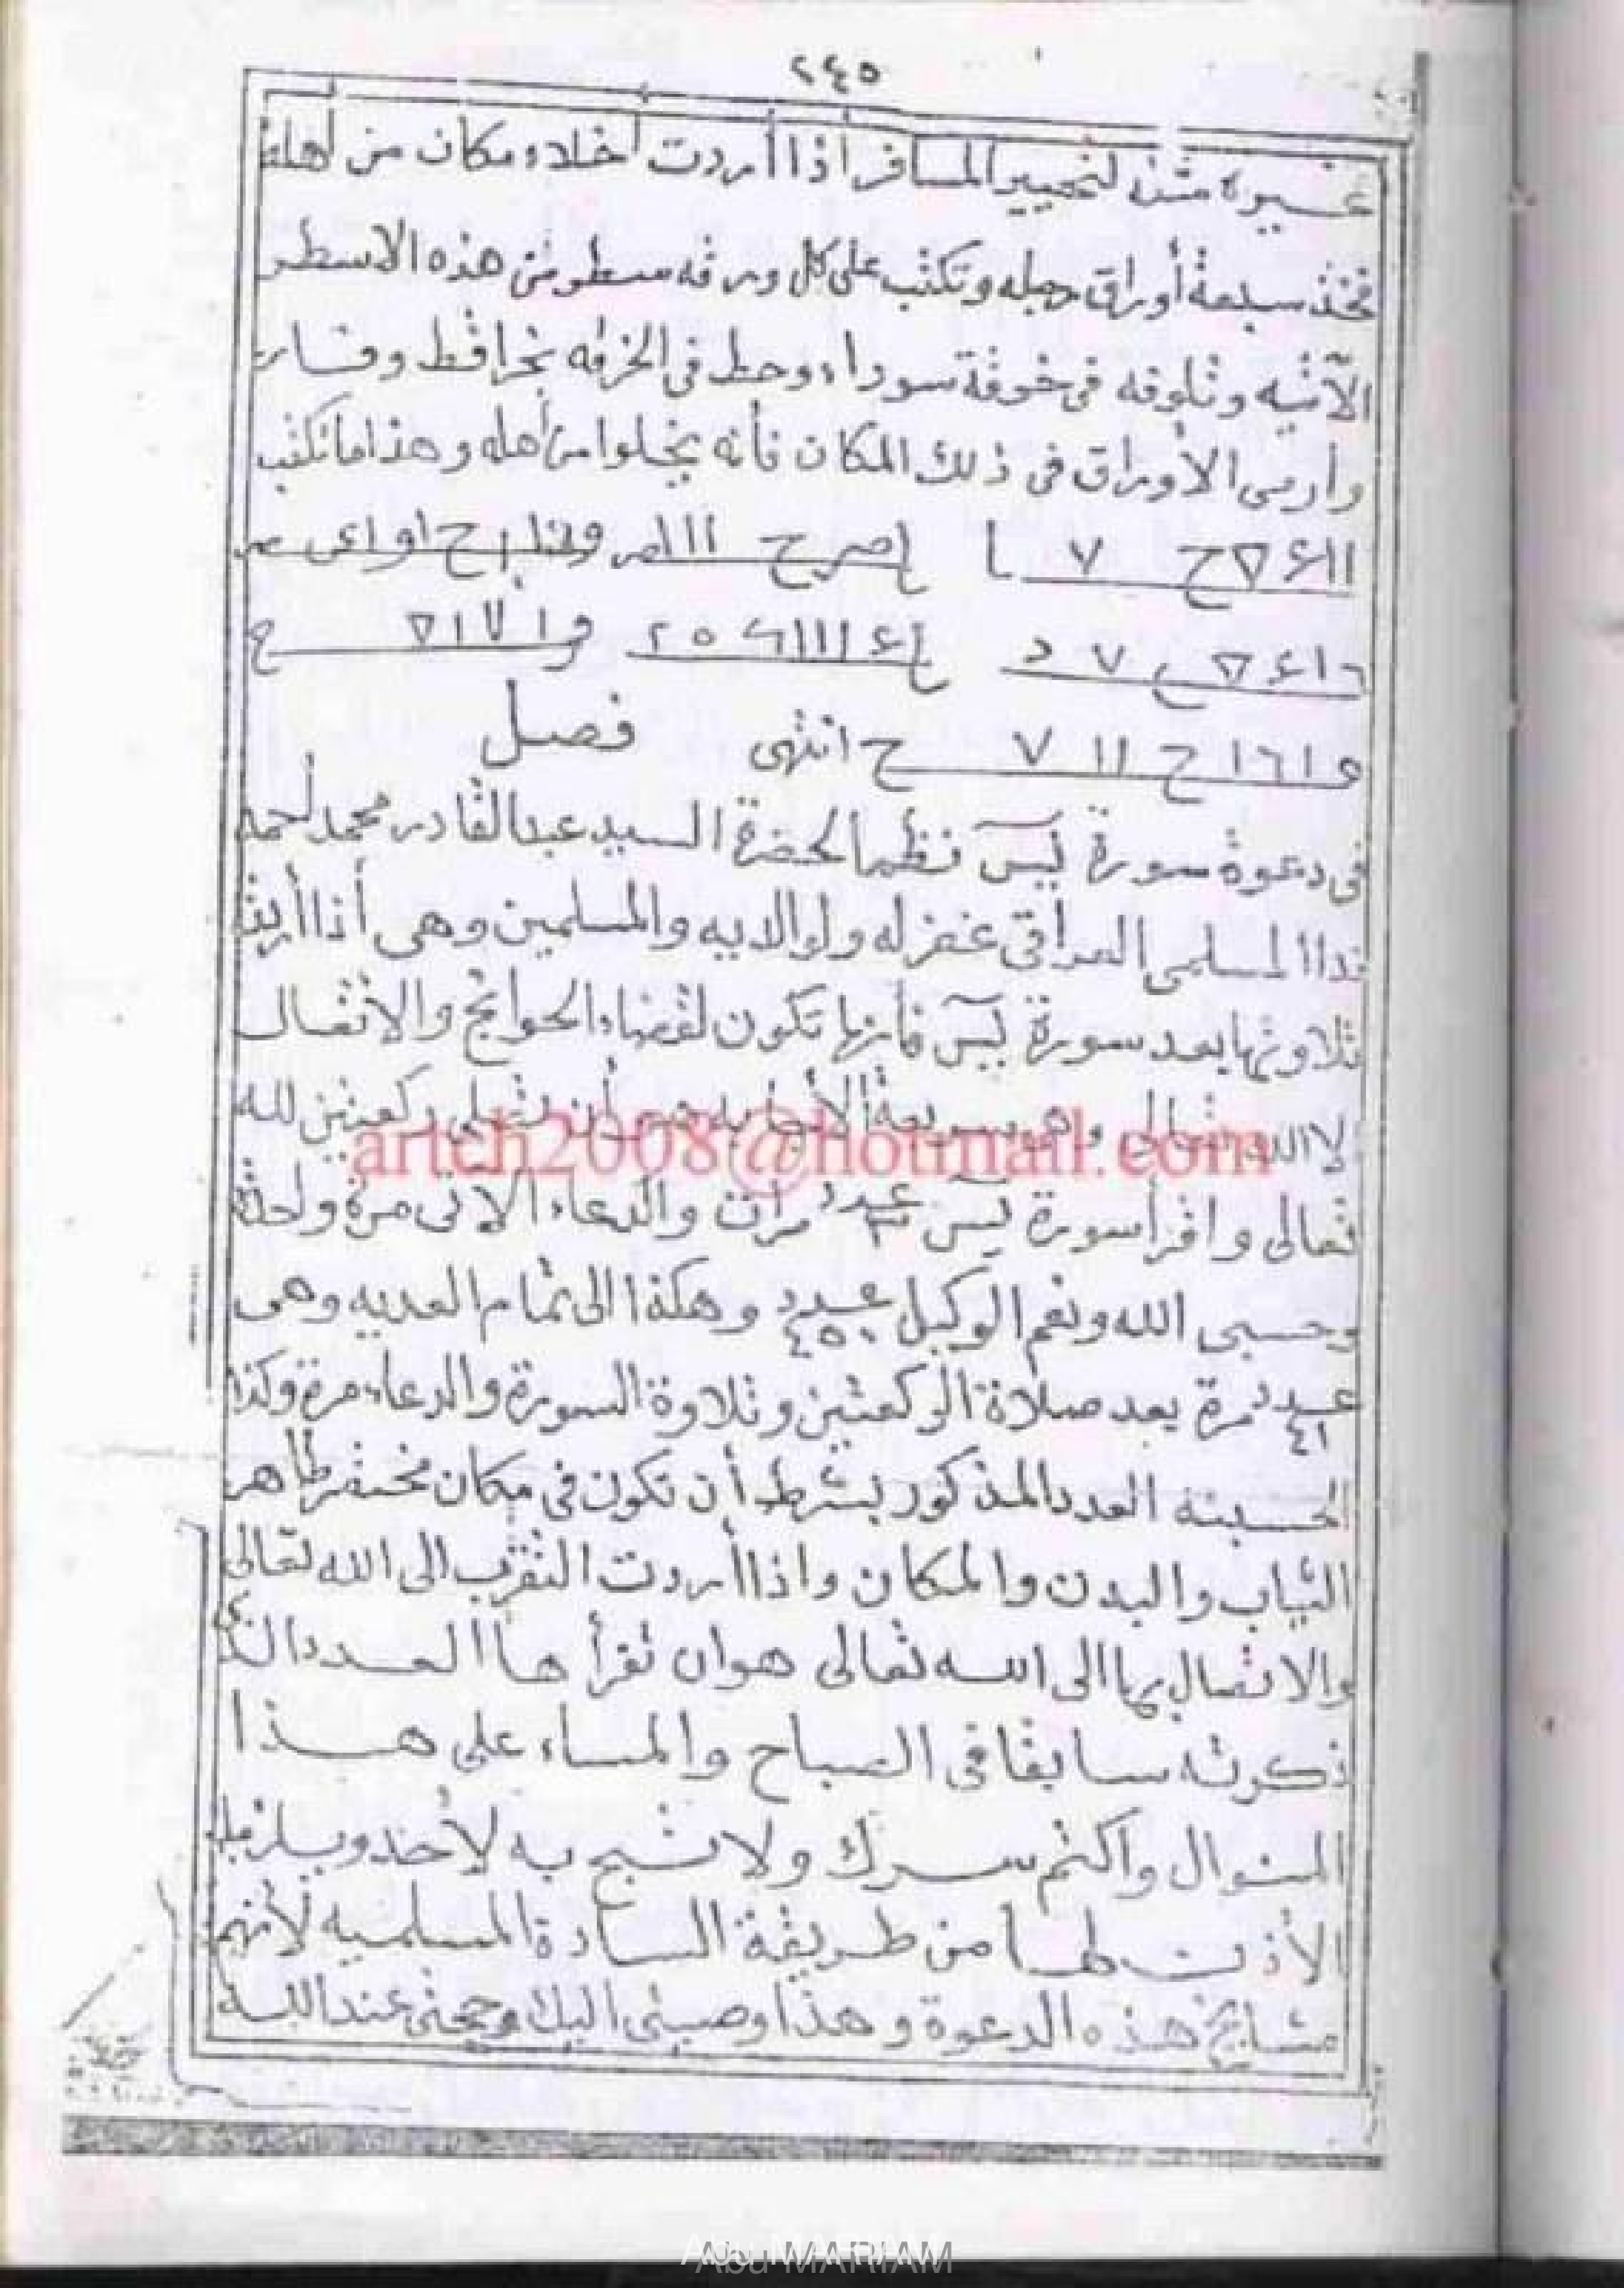 ٢٤٥
غيره منه لتحيير المسافر اذا أردت اخلاء مكان من اهله
فخذ سبعة أوراق دجله وتكتب على كل ورقه سطر من هذه الاسطر
الآتيه وتلوقه فى خوقة سوداء وحط فى الخرقه بخراقط وفار
وأرمى الأوراق فى ذلك المكان فأنه يخلوا من أهله وهذا ما تكتب
انتهى فصل
فى دعوة سورة يسۤ نظما لحضرة السيد عبدالقادر محمد أحمد
ندا المسلمى العراقى غفر له ولوالديه والمسلمين وهى أذا أردت
تلاوتها بعد سورة يسۤ فأنها تكون لقضاء الحوائج والاتصال
لاالله تعالى وهى سريعة الأجابه هى أن تصلى ركعتين لله
تعالى واقرأ سورة يسۤ عدد ٣ مرات والدعاء الاتى مرة واحدة
وحسبى الله ونعم الوكيل عدد ٤٥٠ وهكذا الى تمام العديه وهى
عدد ٤١ مرة بعد صلاة الركعتين وتلاوة السورة والدعاء مرة وكذا
الحسبنة العدد المذكور بشرط أن تكون فى مكان مختفر طاهر
الثياب والبدن والمكان واذا أردت التقرب الى الله تعالى
والاتصال بها الى الله تعالى هو ان تقرأ ها العدد الذى
ذكرته سابقا فى الصباح والمساء على هذا
المنوال واكتم سرك ولا تبح به لأحد ويلزم
الأذن لها من طريقة السادة المسلميه لأنهم
مشايخ هذه الدعوة وهذا وصيتى اليك وحجتى عند الله
artch2008@hotmail.com
Abu MARIAM